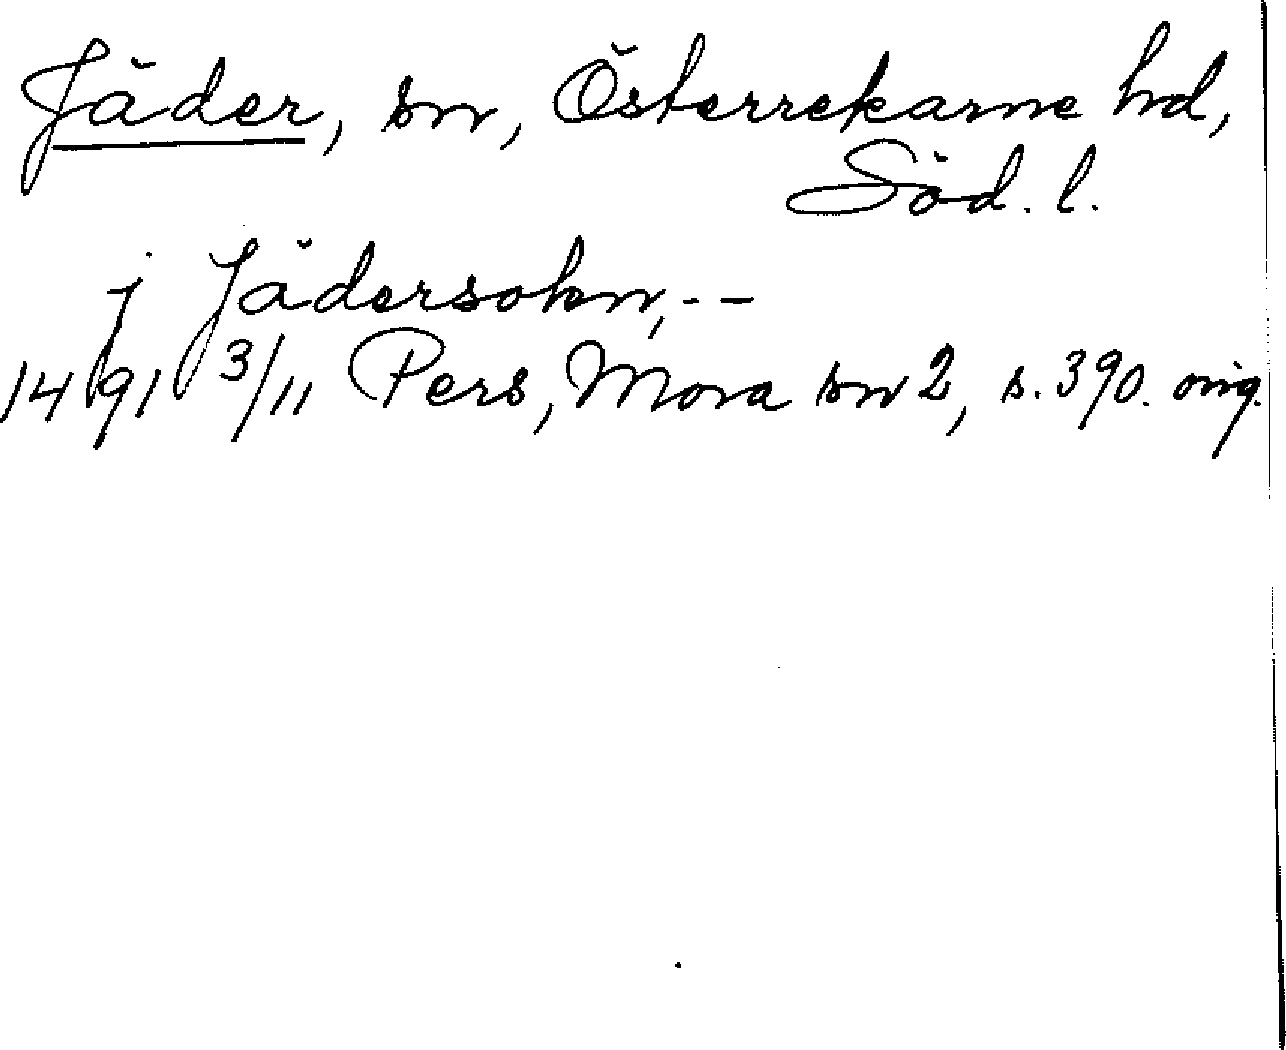 Jäder, sn, Österrekarne hd,
Söd. l.
j Jädersokn, --
1491 3/11 Pers, Mora sn 2, s. 390. orig.